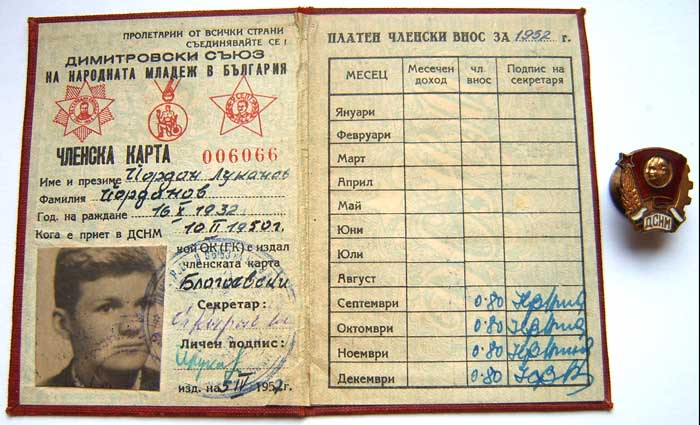 ПРОЛЕТАРИИ ОТ ВСИЧКИ СТРАНИ
СЪЕДИНЯВАЙТЕ СЕ!
ДИМИТРОВСКИ СЪЮЗ
НА НАРОДНАТА МЛАДЕЖ В БЪЛГАРИЯ
ЧЛЕНСКА КАРТА 006066
Име и презиме Йордан Луканов
Фамилия Йорданов
Год. на раждане 16 X 1932
Кога е приет в ДСНМ 10.II 1950г.
кой ОК (ГК) е издал
членската карта
Благоевски
Секретар:
Личен подпис:
изд. на 5 IV 1952г.
ПЛАТЕН ЧЛЕНСКИ ВНОС ЗА 1952 г.
МЕСЕЦ Месечен доход чл. внос Подпис на секретаря
Януари
Февруари
Март
Април
Май
Юни
Юли
Август
Септември 0·80
Октомври 0·80
Ноември 0·80
Декември 0·80
ДСНМ